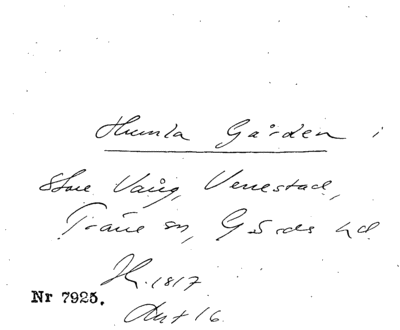 Humla Gården i
Store Vång, Vennestad,
Träne sn, Gärds hd
H. 1817
Nr 7925.
Ant 16